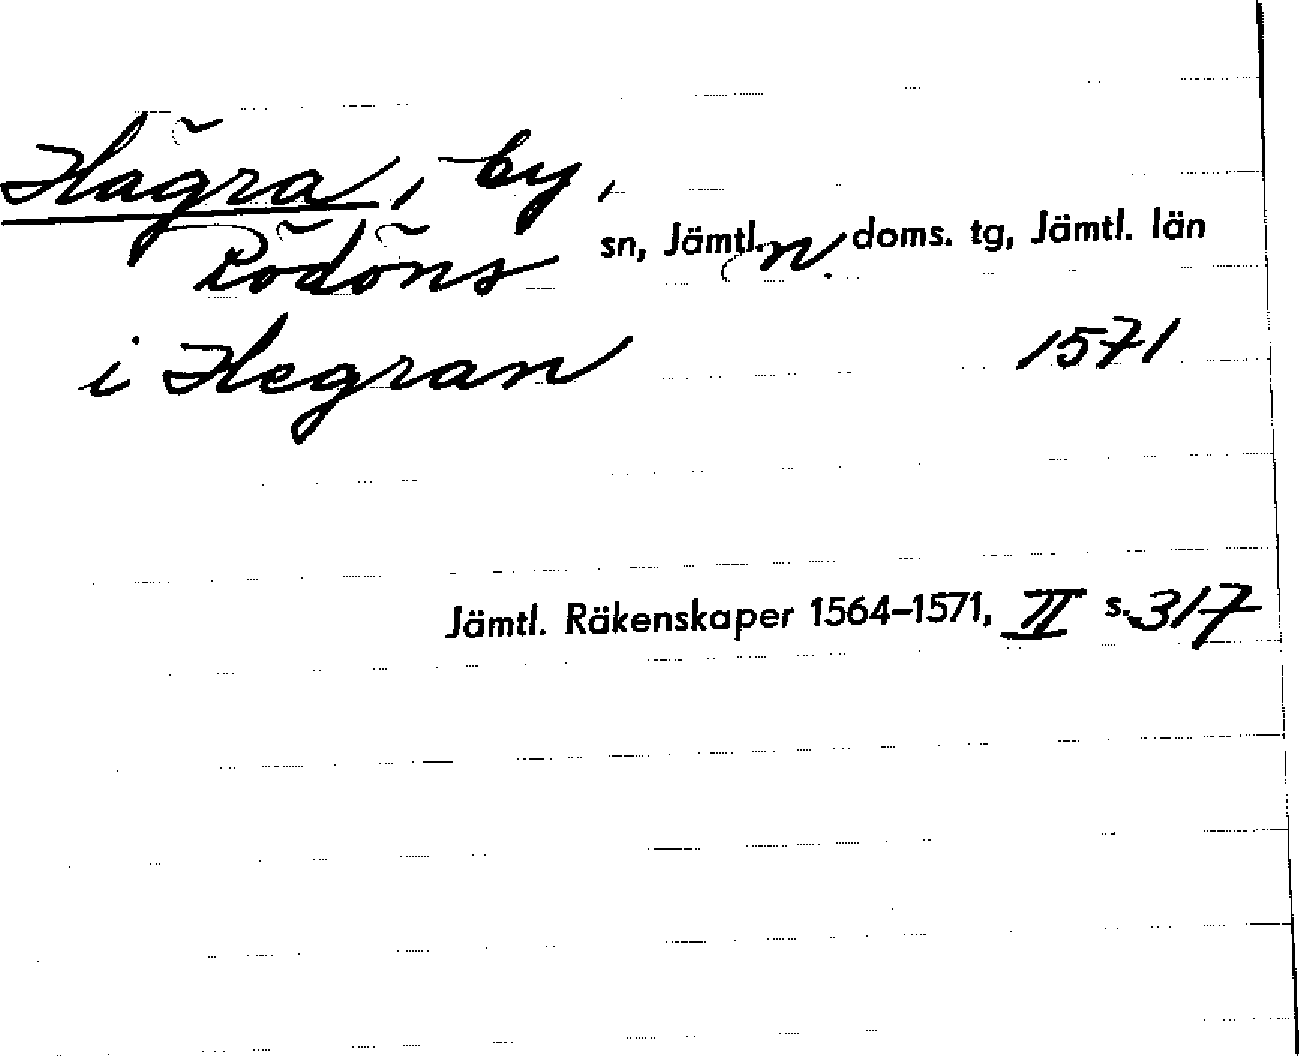 Hägra, by,
Rödöns sn, Jämtl. n. doms. tg, Jämtl. län
i Hegran 1571
Jämtl. Räkenskaper 1564–1571, II s. 317